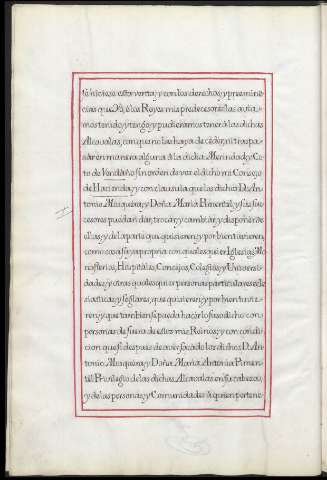 se hiciese esta venta, y con los derechos, y preeminen
cias que Yo, ó los Reyes mis predecesores las auta-
mos tenido, y tengo, y pudieramos tener á las dichas
Alcavalas, con que no las haya de ceder ni traspa
sar en manera alguna á la dicha Merindad, y Co
to de sin orden da vos el dicho mi Consejo
de Hacienda, y con clausula que los dichos D. An
tonio Mosquera, y Doña Maria Pimentel, y sus sus
cesores puedan dar, trocar, y cambiar, y disponer de
ellas, y de la parte que quisieren, y por bien tuvieren
como cosa suya propria con qualesquier Iglesias, Mo
nasterios, Hospitales, Concejos, Colegios, y Universi-
dades, y otras qualesquier personas particulares ecle
siasticas, y seglares, que quisieren, y por bien tuvie-
ren, y que tambien se pueda hacer lo suso dicho con
personas de fuera de estos mis Reinos, y con condi
cion que si despues de haver sacado los dichos D. An
tonio Mosquera, y Doña Maria Antonia Pimen
tel Privilegio de las dichas Alcavalas en su cabeza,
y de las personas, y Comunidades á quien pertene-